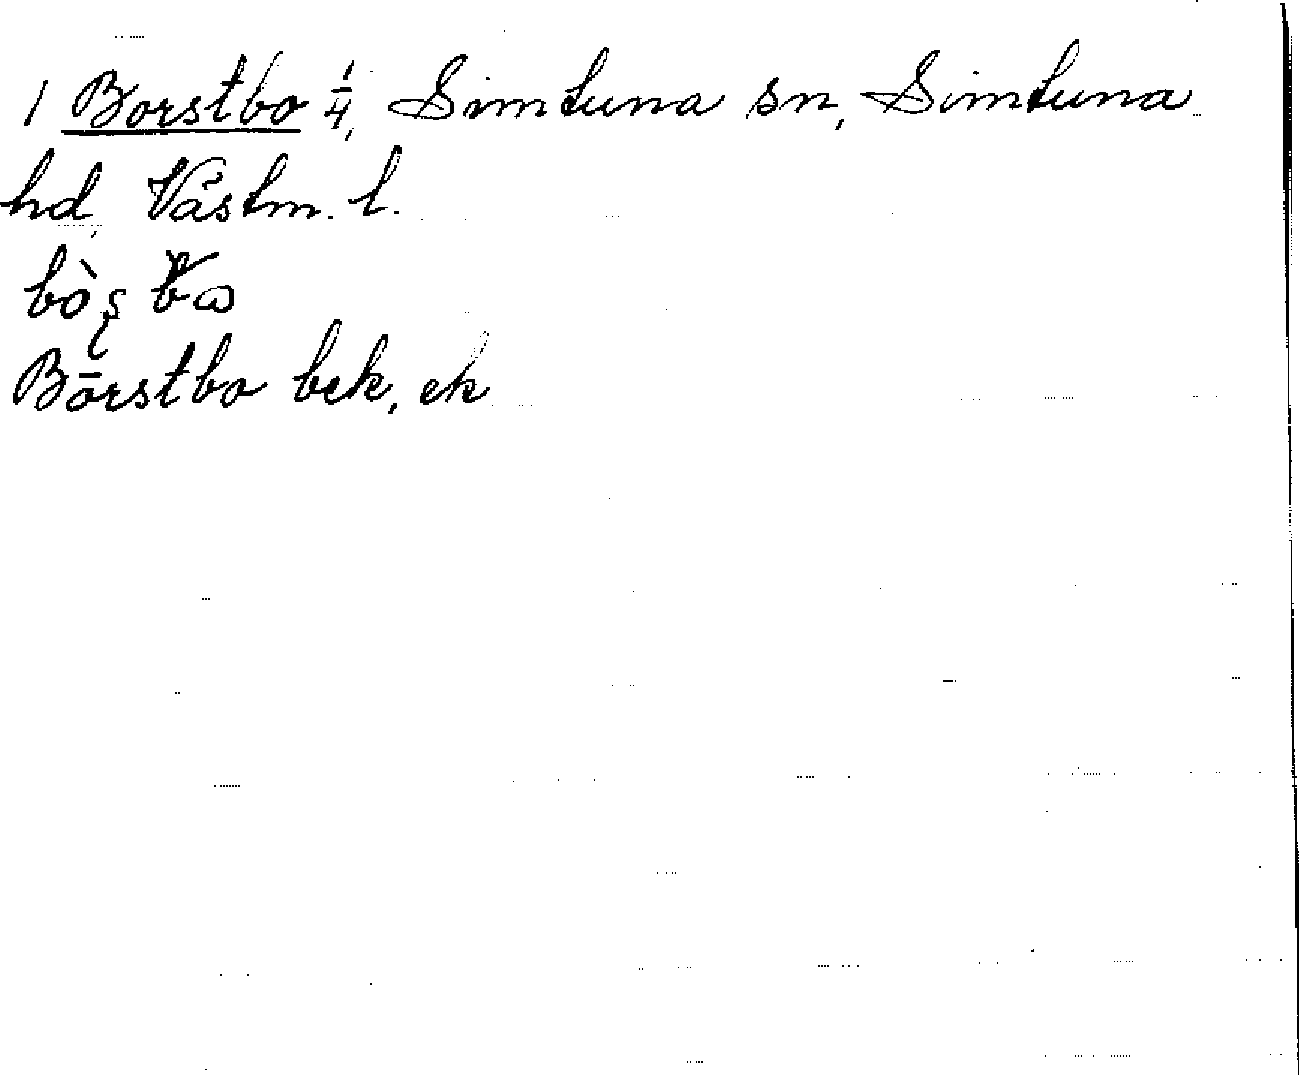 1 Borstbo 1/4, Simtuna sn, Simtuna
hd, Västm. l.
Bōrstbo bek, ek